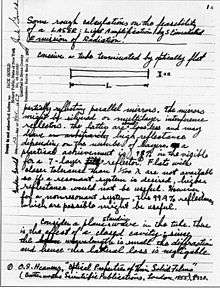 Some rough calculations on the feasibility
of a LASER: Light Amplification by Stimulated
Emission of Radiation.
conceive a tube terminated by optically flat
L
partially reflecting parallel mirrors. The mirrors
might be silvered or multilayer interference
reflectors. The latter are lossless and may
have high reflectance
depending on the number of layers. A
practical achievement is 98% in the visible
for a 7-layer reflector.
closer tolerance than is not available
if a resonant system is desired, higher
reflectance would not be useful. However
for a nonresonant system, the 99.9% reflectors
which are possible might be useful.
Consider a plane standing wave in the tube. There
is the effect of a closed cavity; since
the wavelength is small the diffraction
and hence the lateral loss is negligible.
O.S. Heavens, "Optical Properties of Thin Solid Films"
(Butterworths Scientific Publications, London, 1955)